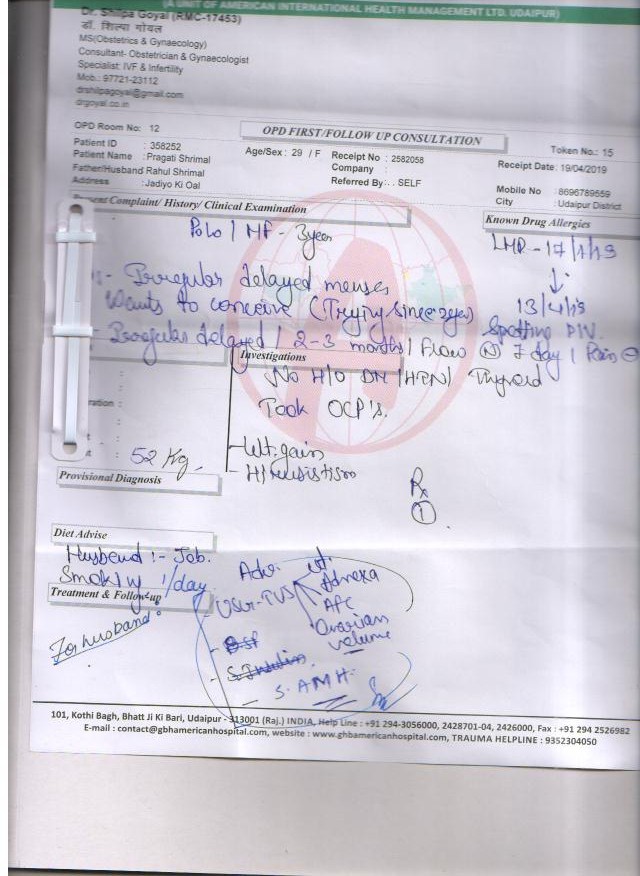 (A UNIT OF AMERICAN INTERNATIONAL HEALTH MANAGEMENT LTD. UDAIPUR)
Dr. Shilpa Goyal (RMC-17453)
डॉ. शिल्पा गोयल
MS(Obstetrics & Gynaecology)
Consultant- Obstetrician & Gynaecologist
Specialist: IVF & Infertility
Mob.: 97721-23112
drshilpagoyal@gmail.com
drgoyal.co.in
OPD Room No: 12
OPD FIRST/FOLLOW UP CONSULTATION
Token No.: 15
Patient ID : 358252
Age/Sex : 29 / F
Receipt No : 2582058
Receipt Date: 19/04/2019
Patient Name : Pragati Shrimal
Company :
Father/Husband Rahul Shrimal
Referred By : . SELF
Mobile No : 8696789559
Address : Jadiyo Ki Oal
City : Udaipur District
Complaint/ History/ Clinical Examination
Known Drug Allergies
P0L0 / MF - 3year
LMP - 17/1/19
↓
- Irregular delayed menses
Wants to conceive (Trying since
13/4/19
Spotting P/V.
Irregular delayed / 2-3 months / Flow (N) day / Pain ⊖
Investigations
No H/O DM / HTN / Thyroid
Took OCP's.
52 Kg.
- Wt. gain
- Hirsutism
Provisional Diagnosis
Rx
①
Diet Advise
Husband :- Job.
Smoking 1/day
Adv.
ut.
Adnexa
AFC
Ovarian volume
Treatment & Follow-up
- USG-TVS
For husband:
- S. AMH
101, Kothi Bagh, Bhatt Ji Ki Bari, Udaipur - 313001 (Raj.) INDIA, Help Line : +91 294-3056000, 2428701-04, 2426000, Fax : +91 294 2526982
E-mail : contact@gbhamericanhospital.com, website : www.gbhamericanhospital.com, TRAUMA HELPLINE : 9352304050